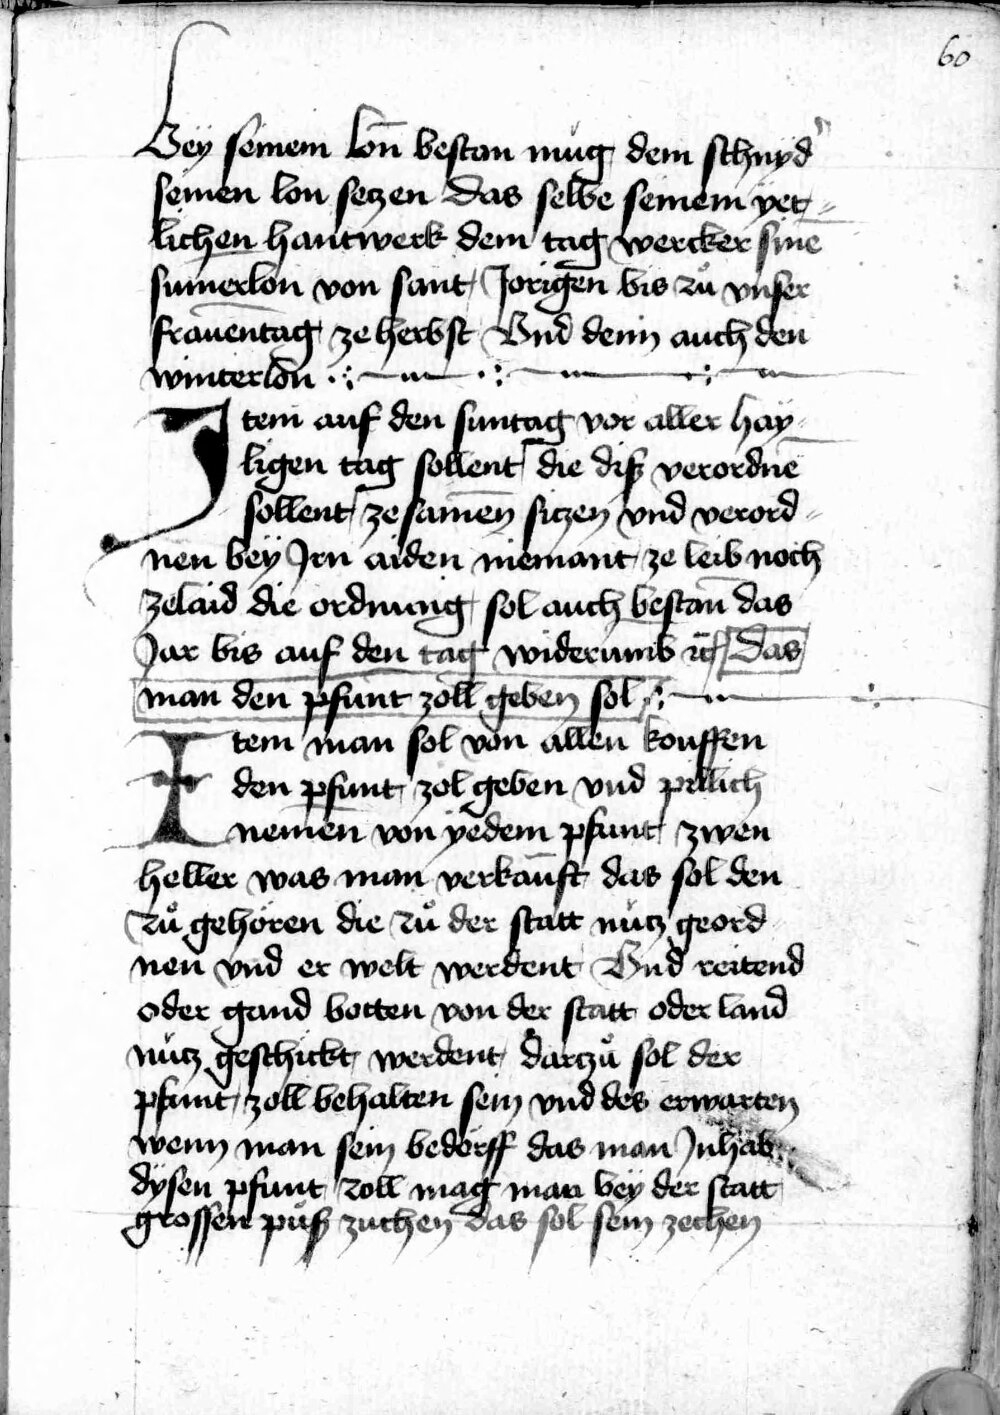 60
Bey seinem lon̄ bestan mug dem schnyd
seinen lon setzen das selbe seinem yet-
lichen hantwerk dem tag wercker sinē
sumerlon von sant Jorigen bis zů vnser
frawentag ze herbst Vnd denn auch den
winterlon
Item auf den suntag vor aller hay-
ligen tag sollent die disz verordnē
sollent ze samen̄ sitzen vnd verord-
nen bey Jrn aiden niemant ze leib noch
ze laid die ordnung sol auch bestan̄ das
Jar bis auf den tag widerumb Das
man den pfunt zoll geben sol
Item man sol von allen kouffen
den pfunt zol geben vnd pillich
nemen̄ von yedem pfunt zwen
heller was man verkauft das sol den
zů gehören die zů der statt nutz geord
nen vnd er welt werdent Vnd reitend
oder gand botten von der statt oder land
nutz geschickt werdent dartzů sol der
pfunt zoll behalten sein vnd des erwarten
wenn man sein bedörff das man Jnhab
dysen pfunt zoll mag man bey der statt
grossen půsz zuchen das sol sein zechen